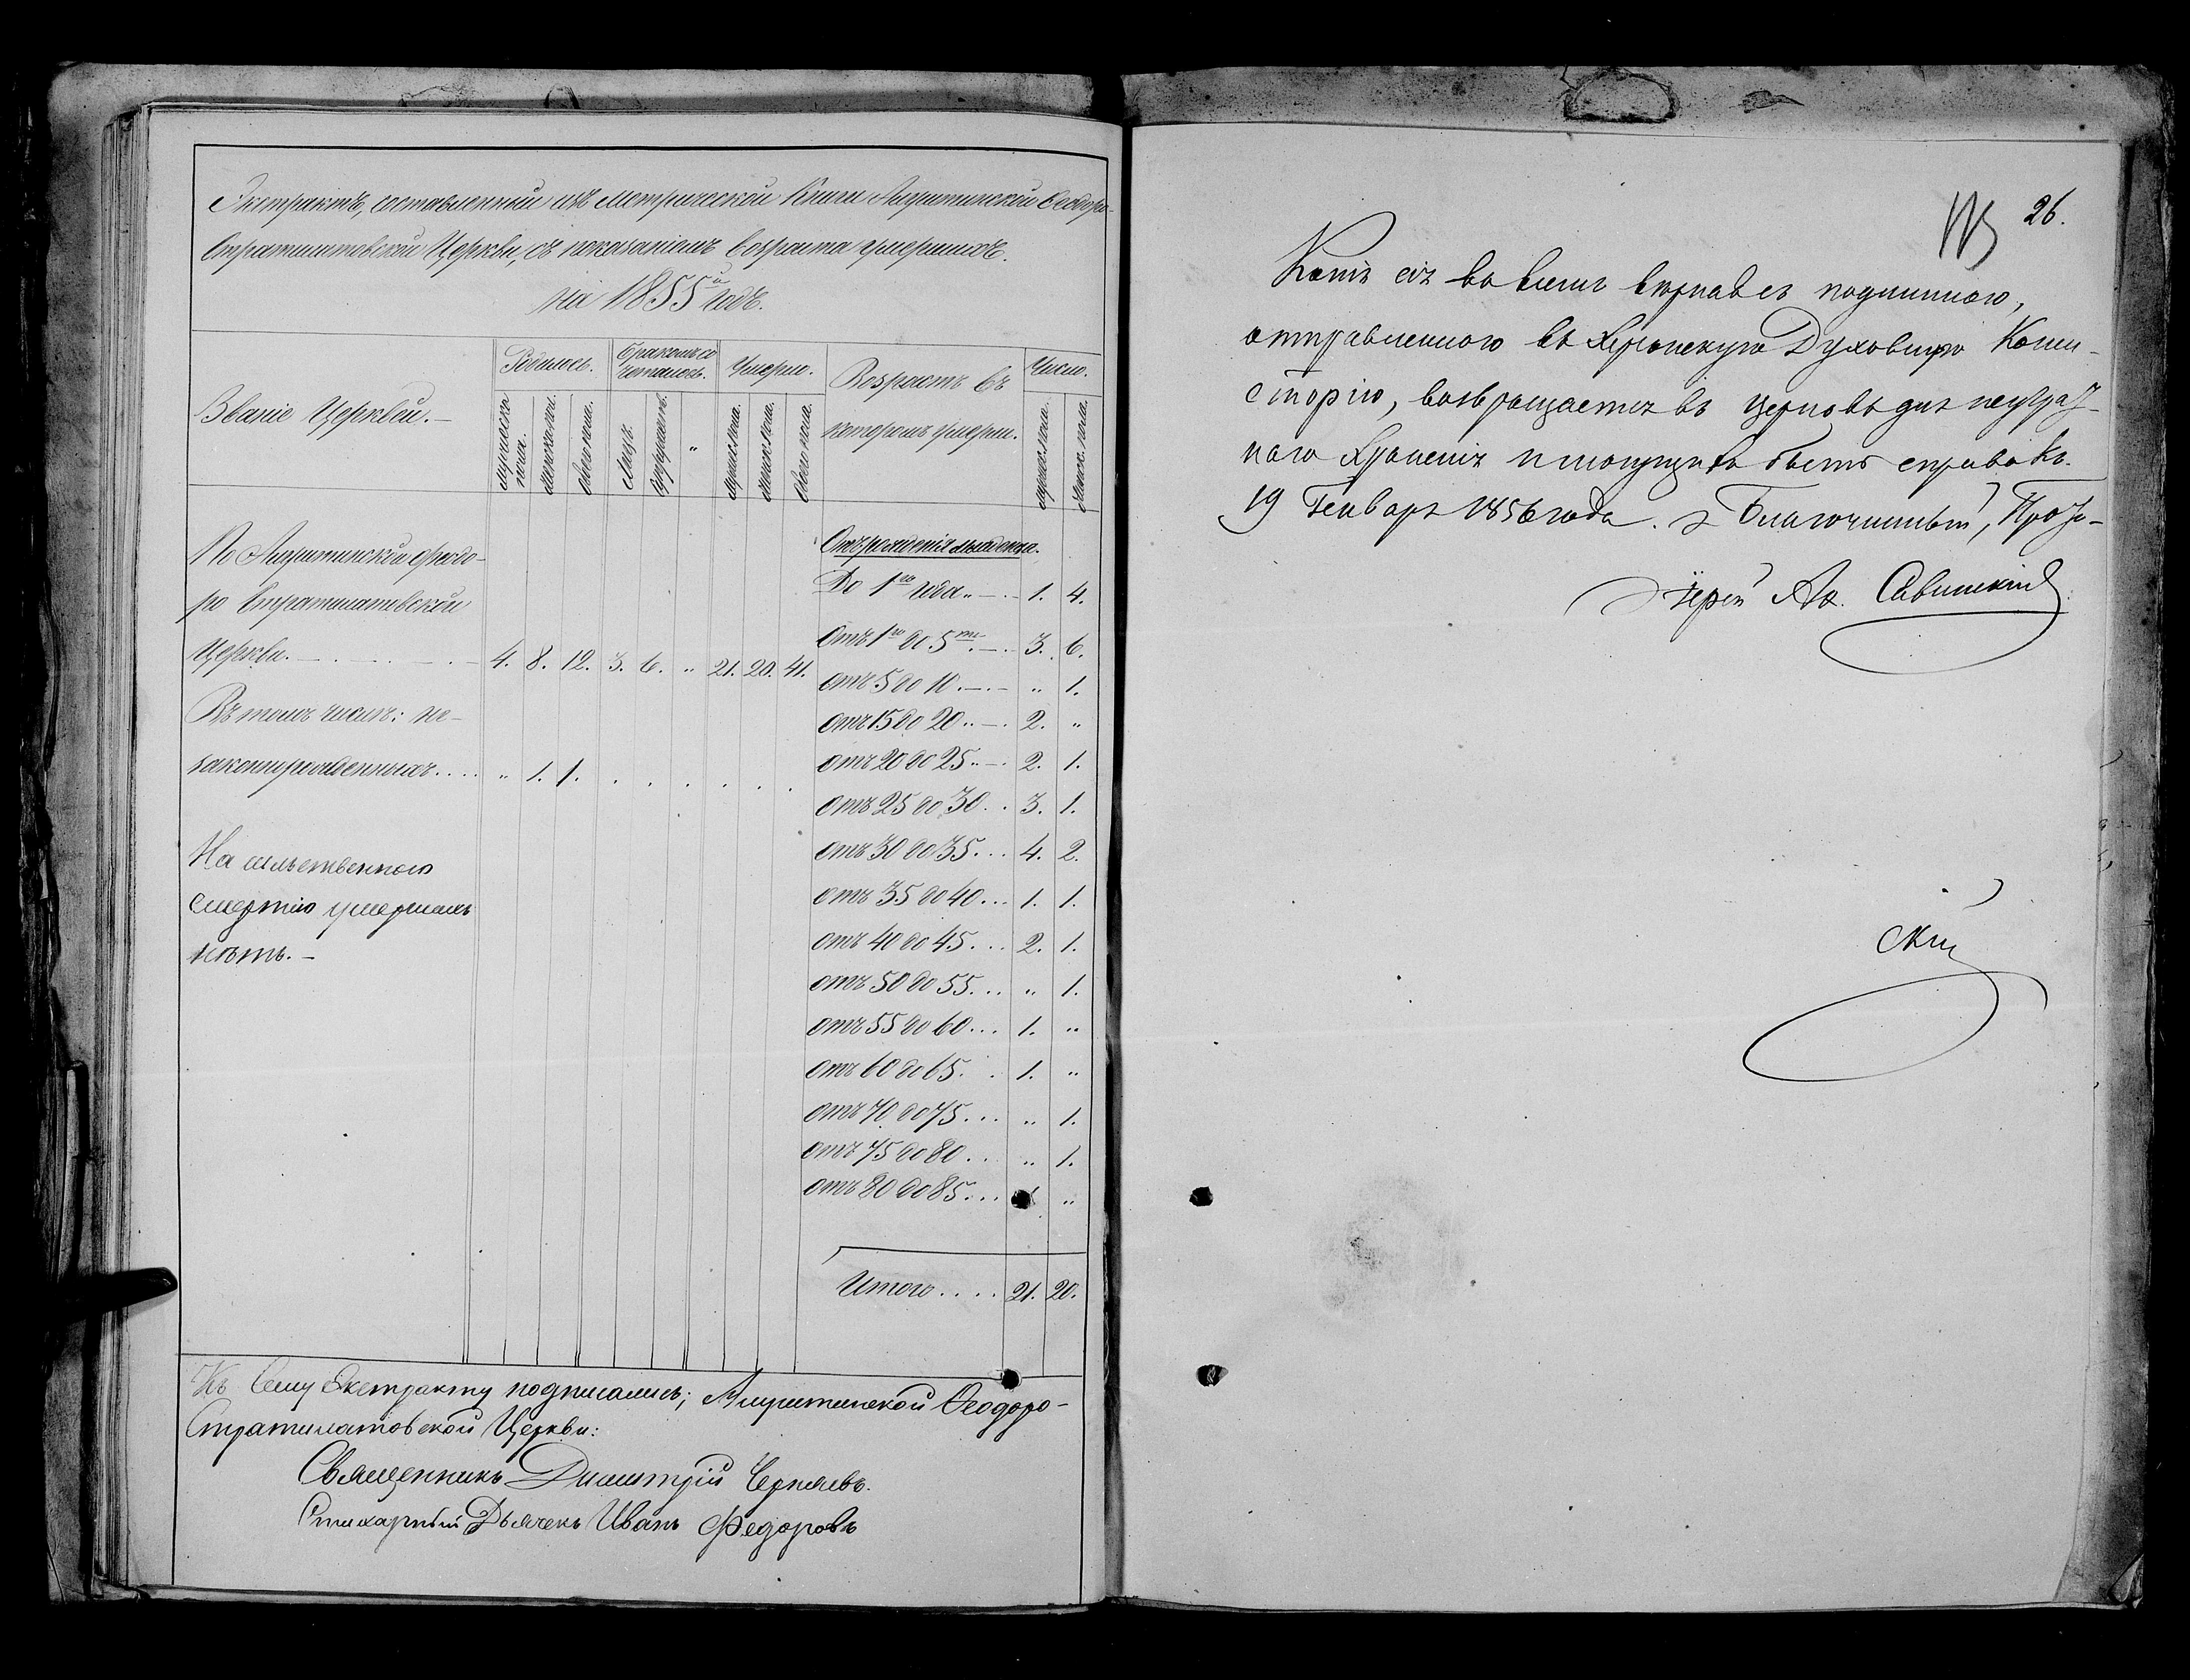 Экстрактъ, составленный изъ метрической Книги Акушинской Ѳеодоро-
Стратилатовской Церкви, съ показаніемъ возраста умершихъ.
на 1855й годъ.
Званіе Церквей.
Родилось.
Бракомъ со
четалось.
Умерло.
Возрастъ въ
которомъ умерли.
Число.
мужеска
пола.
женска пола.
обоего пола.
Лицъ.
Супружествъ.
"
мужес. пола.
женск. пола.
обоего пола.
мужес. пола.
женск. пола.
Отъ рожденія младенца.
До 1го года „ 1. 4.
Отъ 1го до 5ти 3. 6.
отъ 5 до 10. „ 1.
отъ 15 до 20 „ 2. „
отъ 20 до 25 „ 2. 1.
отъ 25 до 30 .. 3. 1.
отъ 30 до 35 ... 4. 2.
отъ 35 до 40 ... 1. 1.
отъ 40 до 45 ... 2. 1.
отъ 50 до 55 ... „ 1.
отъ 55 до 60 ... 1. „
отъ 60 до 65. . 1. „
отъ 70 до 75 ... „ 1.
отъ 75 до 80 .. „ 1.
отъ 80 до 85 ... „
Итого .... 21. 20.
По Ѳеодо-
ро Стратилатовской
Церкви. 4. 8. 12. 3. 6. „ 21. 20. 41.
Въ томъ числѣ: не-
законнорожденныхъ .... „ 1. 1. . . . . . .
Насильственною
смертію умершихъ
нѣтъ. –
Къ сему Экстракту подписались; Ѳеодоро-
Стратилатовской Церкви:
Священникъ Димитрій Черняевъ.
Стихарный Дьячекъ Иванъ Федоровъ
26.
Копія сія во всемъ вѣрна съ подлинною,
отправленною въ Херсонскую Духовную Конси-
сторію, возвращается въ церковь для
наго храненія и могущихъ быть справокъ.
19 Генваря 1856 года. Благочинный, Прото-
іерей Ал. Савинскій